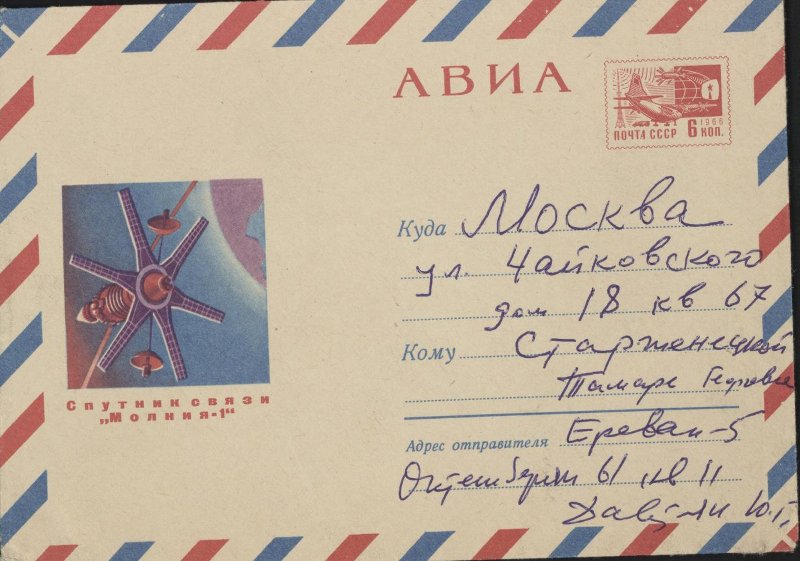 АВИА
1966
ПОЧТА СССР 6 КОП.
Куда Москва
ул. Чайковского
дом 18 кв 67
Кому Старженецкой
Тамаре
Спутник связи
„Молния-1“
Адрес отправителя Ереван-5
61 кв 11